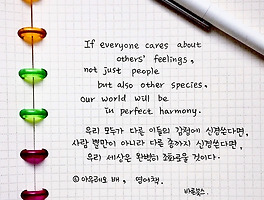 If everyone cares about
others' feelings,
not just people
but also other species,
our world will be
in perfect harmony.
우리 모두가 다른 이들의 감정에 신경쓴다면,
사람 뿐만이 아니라 다른 종까지 신경쓴다면,
우리 세상은 완벽히 조화로울 것이다.
ⓒ 아우레오 배, 영어책.
바른붓스.